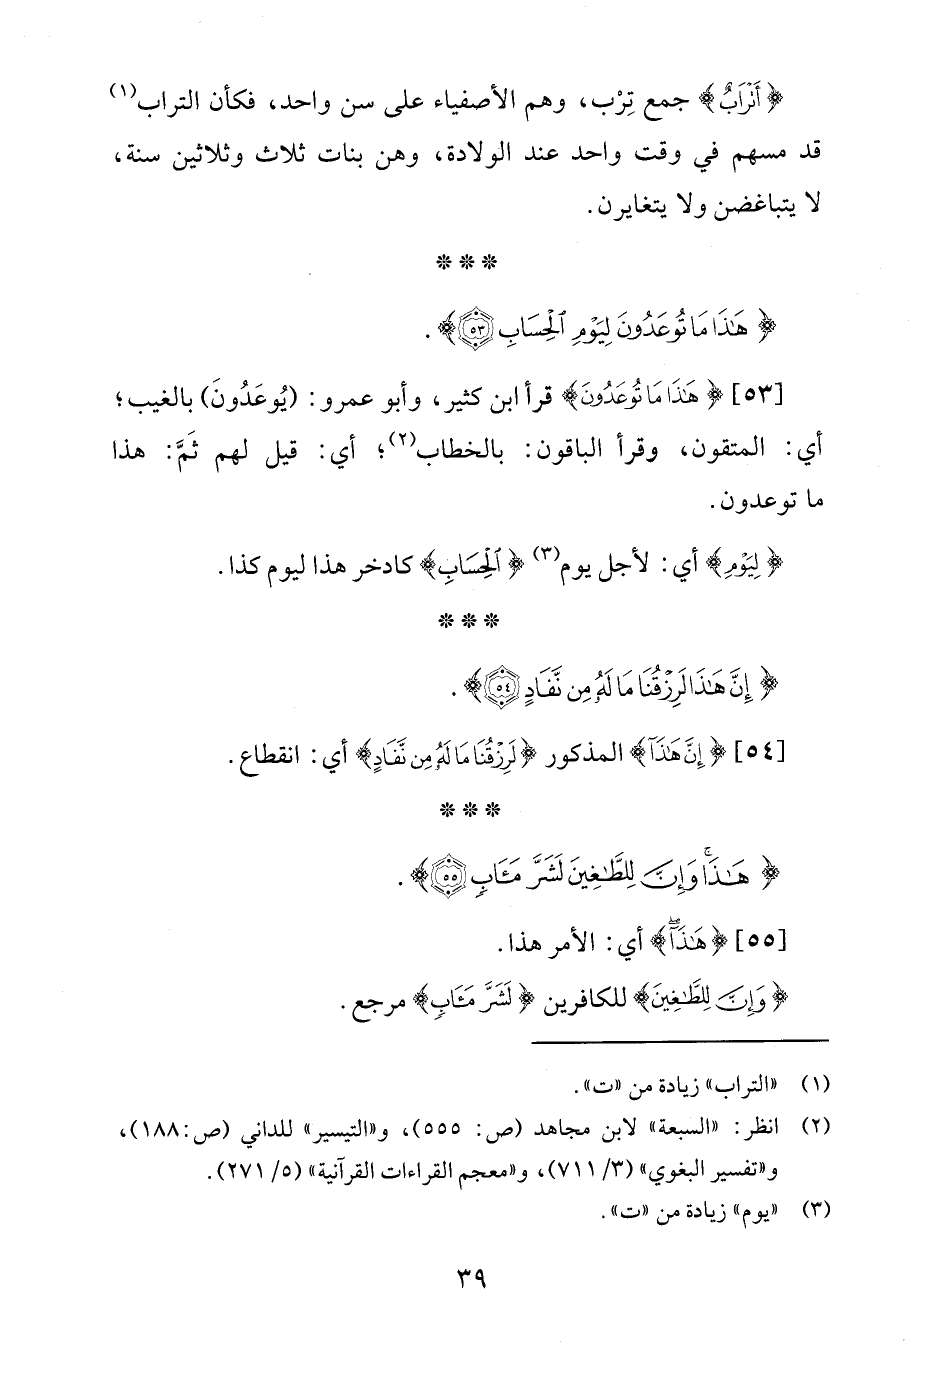 ﴿أَتْرَابٌ﴾ جمع تِرْب، وهم الأصفياء على سن واحد، فكأن التراب(١)
قد مسهم في وقت واحد عند الولادة، وهن بنات ثلاث وثلاثين سنة،
لا يتباغضن ولا يتغايرن.
* * *
﴿هَٰذَا مَا تُوعَدُونَ لِيَوْمِ ٱلْحِسَابِ ٥٣﴾.
[٥٣] ﴿هَٰذَا مَا تُوعَدُونَ﴾ قرأ ابن كثير، وأبو عمرو: (يُوعَدُونَ) بالغيب؛
أي: المتقون، وقرأ الباقون: بالخطاب(٢)؛ أي: قيل لهم ثَمَّ: هذا
ما توعدون.
﴿لِيَوْمِ﴾ أي: لأجل يوم(٣) ﴿ٱلْحِسَابِ﴾ كادخر هذا ليوم كذا.
* * *
﴿إِنَّ هَٰذَا لَرِزْقُنَا مَا لَهُۥ مِن نَّفَادٍ ٥٤﴾.
[٥٤] ﴿إِنَّ هَٰذَا﴾ المذكور ﴿لَرِزْقُنَا مَا لَهُۥ مِن نَّفَادٍ﴾ أي: انقطاع.
* * *
﴿هَٰذَا ۚ وَإِنَّ لِلطَّٰغِينَ لَشَرَّ مَـَٔابٍ ٥٥﴾.
[٥٥] ﴿هَٰذَا﴾ أي: الأمر هذا.
﴿وَإِنَّ لِلطَّٰغِينَ﴾ للكافرين ﴿لَشَرَّ مَـَٔابٍ﴾ مرجع.
(١) «التراب» زيادة من «ت».
(٢) انظر: «السبعة» لابن مجاهد (ص: ٥٥٥)، و«التيسير» للداني (ص:١٨٨)،
و«تفسير البغوي» (٣/ ٧١١)، و«معجم القراءات القرآنية» (٥/ ٢٧١).
(٣) «يوم» زيادة من «ت».
٣٩